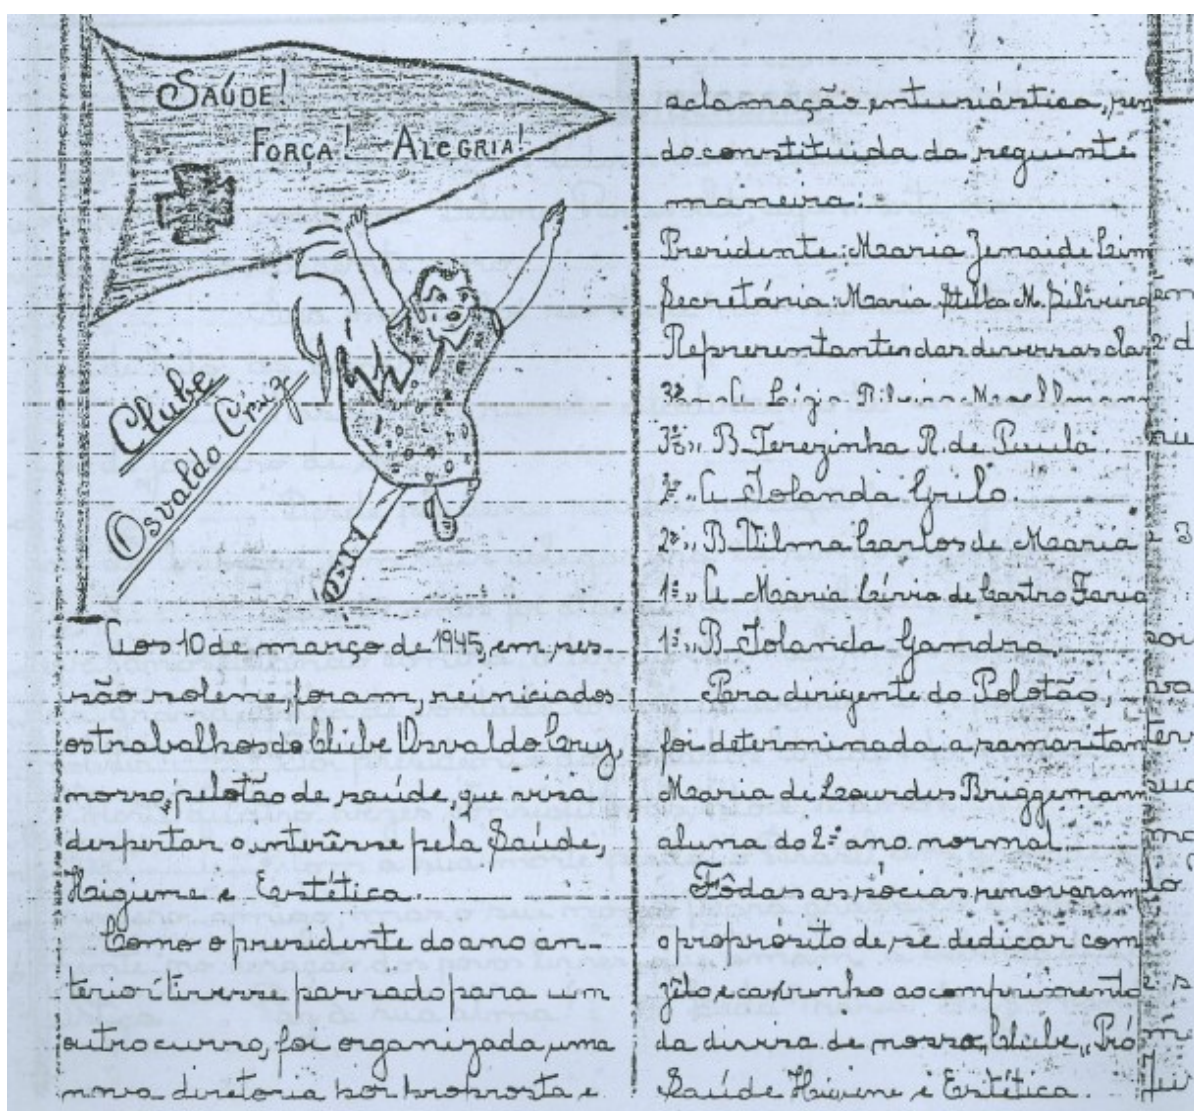 SAÚDE!
FORÇA! ALEGRIA!
Clube
Osvaldo Cruz
Aos 10 de março de 1945, em ses-
são solene, foram, reiniciados
os trabalhos do Clube Osvaldo Cruz,
nosso pelotão de saúde, que visa
despertar o interêsse pela Saúde,
Higiene e Estética.
Como o presidente do ano an-
terior tivesse passado para um
outro curso, foi organizada uma
nova diretoria por proposta e
aclamação entusiástica, sen
do constituida da seguinte
maneira:
Presidente: Maria Zenaide Lim
Secretária: Maria Stella M. Silveira
Representantes das diversas clas
A Ligia Ribeiro
3º " B Terezinha R. de Paula.
2º " A Iolanda Grilo.
2º " B Vilma Carlos de Maria
1º " A Maria Lívia de Castro Faria
1º " B Iolanda Gandra.
Para dirigente do Pelotão,
foi determinada a samaritan
Maria de Lourdes Briggemann
aluna do 2º ano normal.
Tôdas as sócias renovaram
o propósito de se dedicar com
zêlo e carinho ao comprimento
da divisa de nosso Clube "Pró
Saúde Higiene e Estética.